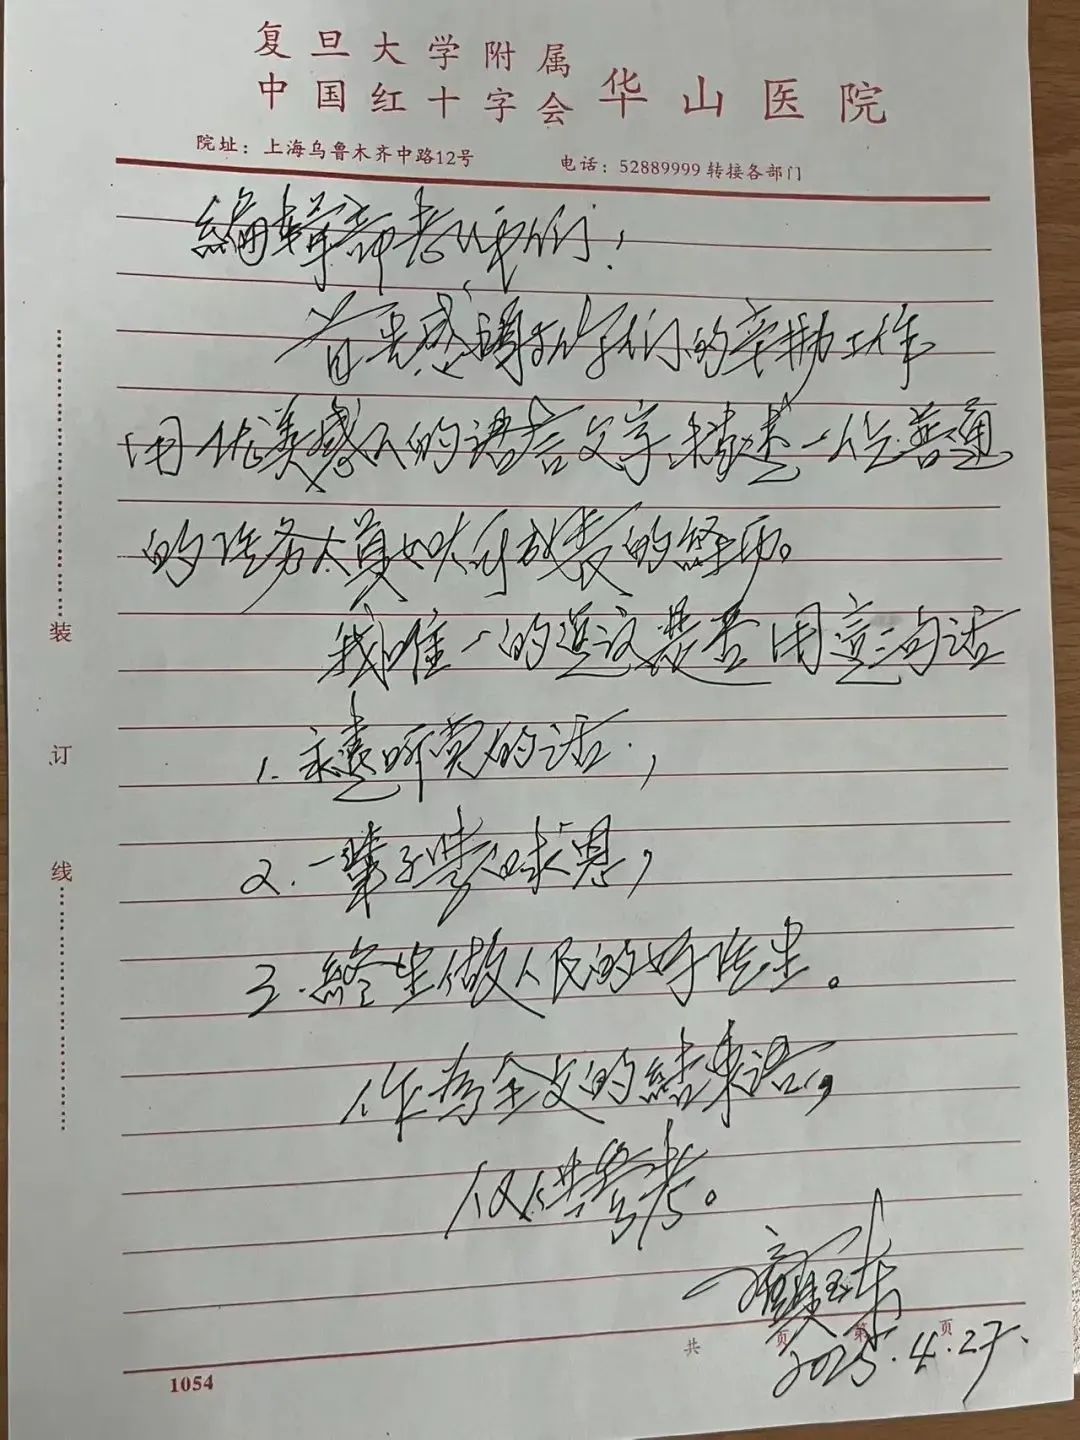 复旦大学附属
中国红十字会 华山医院
院址：上海乌鲁木齐中路12号 电话：52889999 转接各部门
编辑部老师们！
首要感謝你们的辛勤工作
用优美感人的语言文字 描述一位普通
的医务人員如 的经历。
我唯一的建议是否用這三句话
1. 永遠听党的话，
2. 一輩子学白求恩，
3. 終生做人民的好医生。
作为全文的結束语，
仅供参考。
2025.4.27.
装
订
线
共 页 第 页
1054